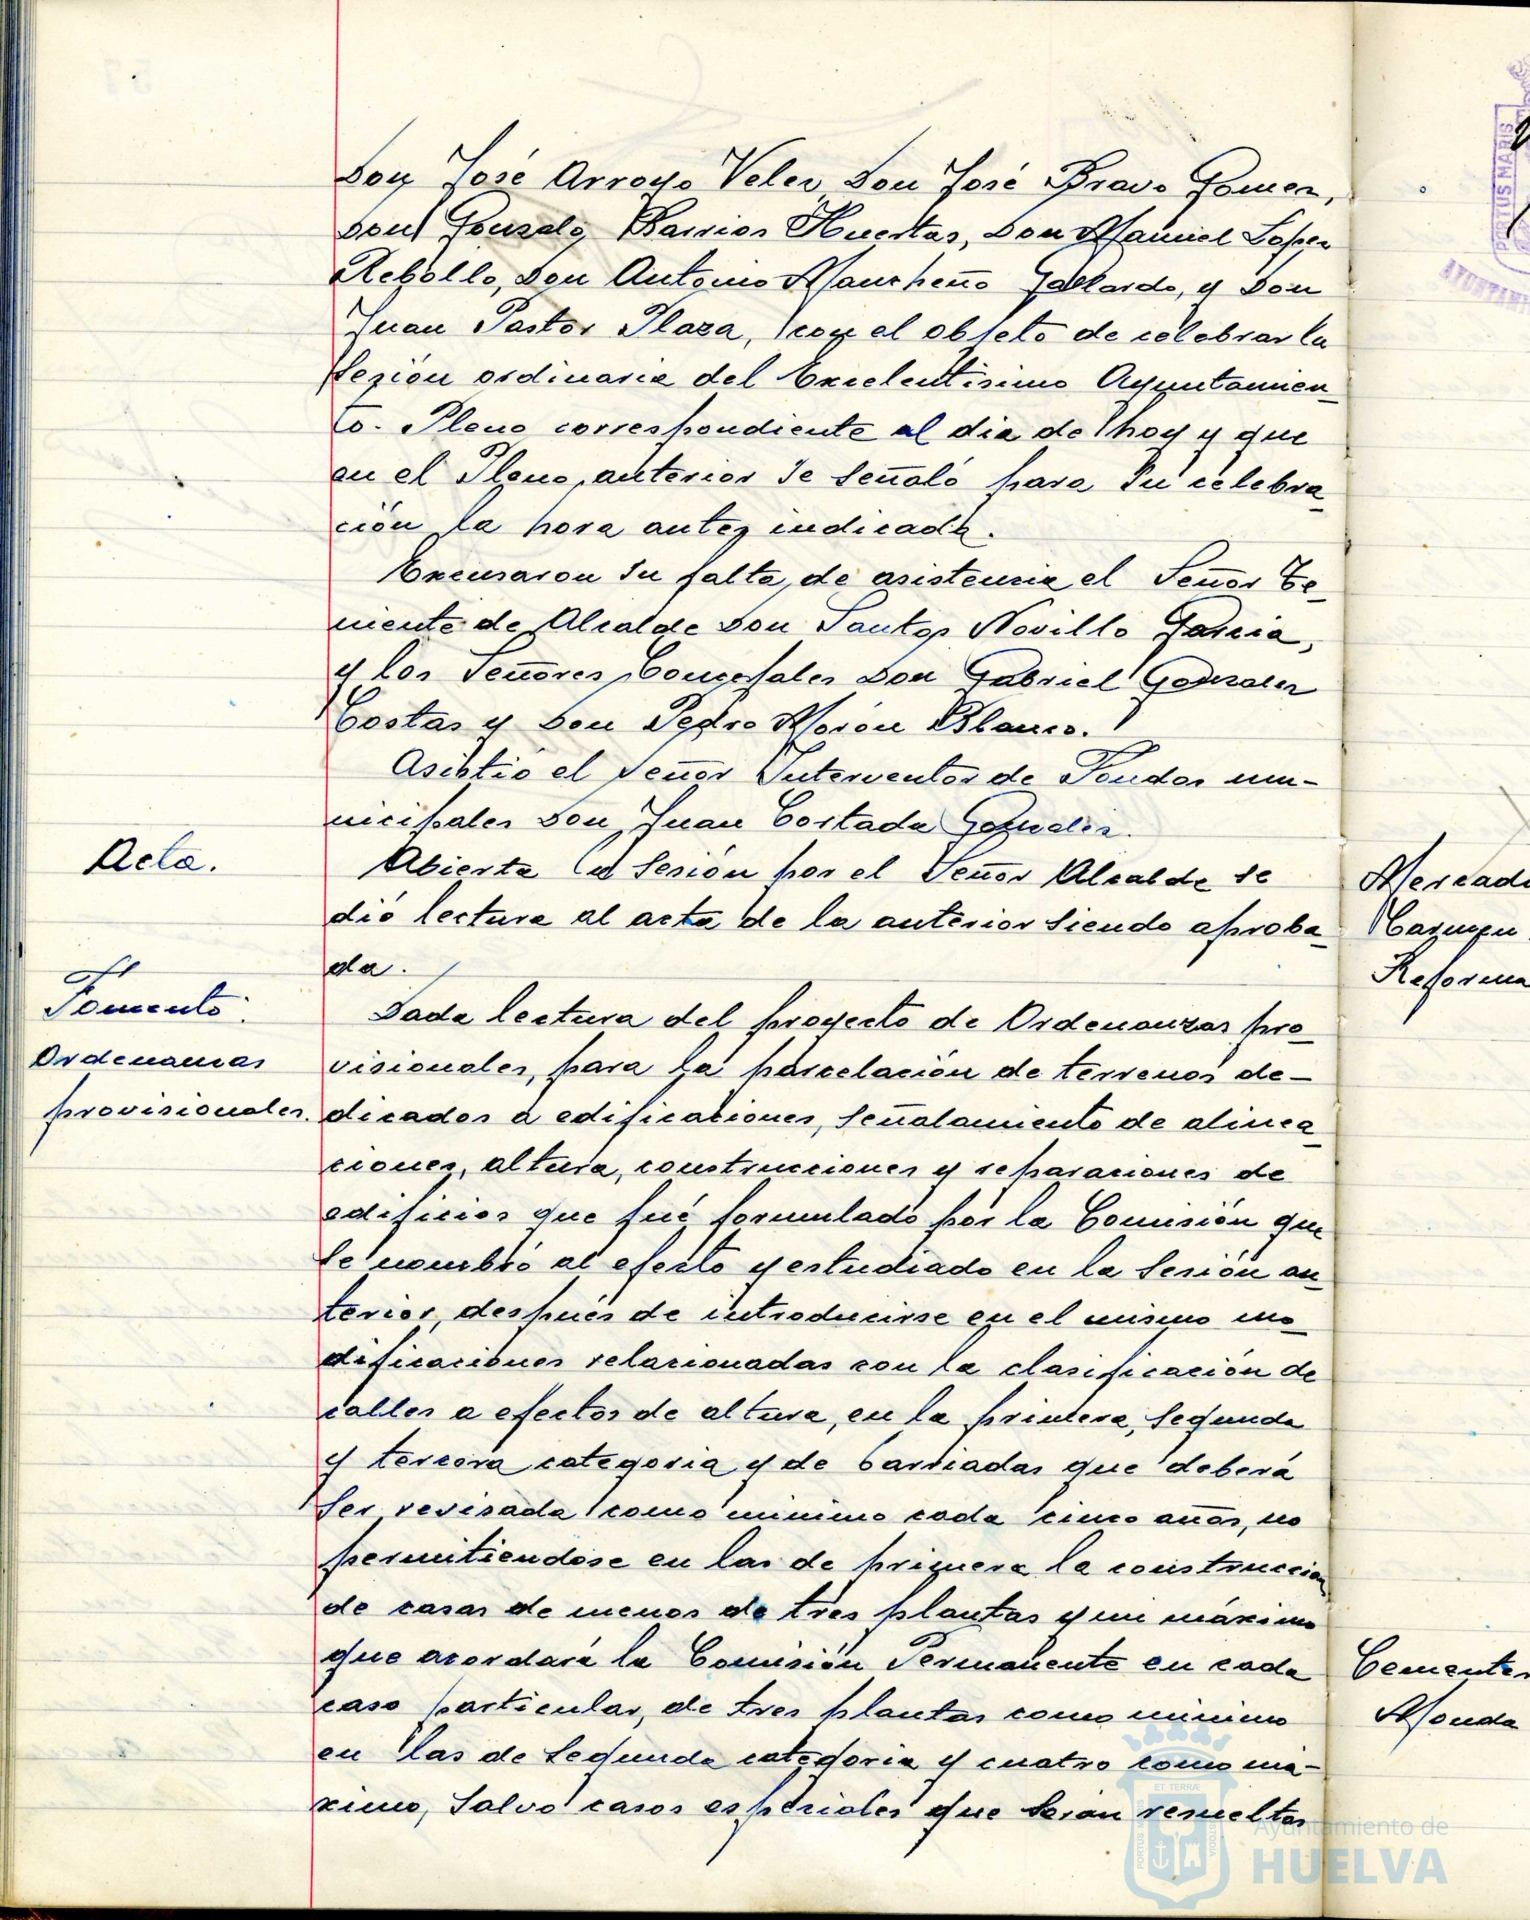 Don José Arroyo Velez, Don José Bravo Gomez,
Don Gonzalo Barrios Huertas, Don Manuel Lopez
Rebollo, Don Antonio Mancheño Gallardo, y Don
Juan Pastor Plaza, con el objeto de celebrar la
Sesión ordinaria del Excelentisimo Ayuntamien_
to. Pleno correspondiente al dia de hoy y que
en el Pleno anterior se señaló para su celebra_
ción la hora antes indicada.
Excusaron su falta de asistencia el Señor Te_
niente de Alcalde Don Santos Novillo Garcia,
y los Señores Concejales Don Gabriel Gonzalez
Costas y Don Pedro Morón Blanco.
Asistió el Señor Interventor de Fondos mu-
nicipales Don Juan Cortada Gonzalez.
Acta.
Abierta la Sesión por el Señor Alcalde se
dió lectura al acta de la anterior siendo aproba_
da.
Fomento.
Ordenanzas
provisionales.
Dada lectura del proyecto de Ordenanzas pro_
visionales, para la parcelación de terrenos de-
dicados a edificaciones, señalamiento de alinea_
ciones, altura, construcciones y reparaciones de
edificios que fué formulado por la Comisión que
se nombró al efecto y estudiado en la Sesión an_
terior, despues de introducirse en el mismo mo_
dificaciones relacionadas con la clasificación de
calles a efectos de altura, en la primera, segunda
y tercera categoria y de barriadas que deberá
ser revisada como minimo cada cinco años, no
permitiendose en las de primera la construccion
de casas de menos de tres plantas y un máximo
que acordará la Comisión Permanente en cada
caso particular, de tres plantas como minimo
en las de segunda categoria y cuatro como má-
ximo, salvo casos especiales que serán resueltos
Mercado
Carmen
Reforma
Cementer
Monda
PORTUS MARIS
ET TERRÆ
CUSTODIA
Ayuntamiento de
HUELVA